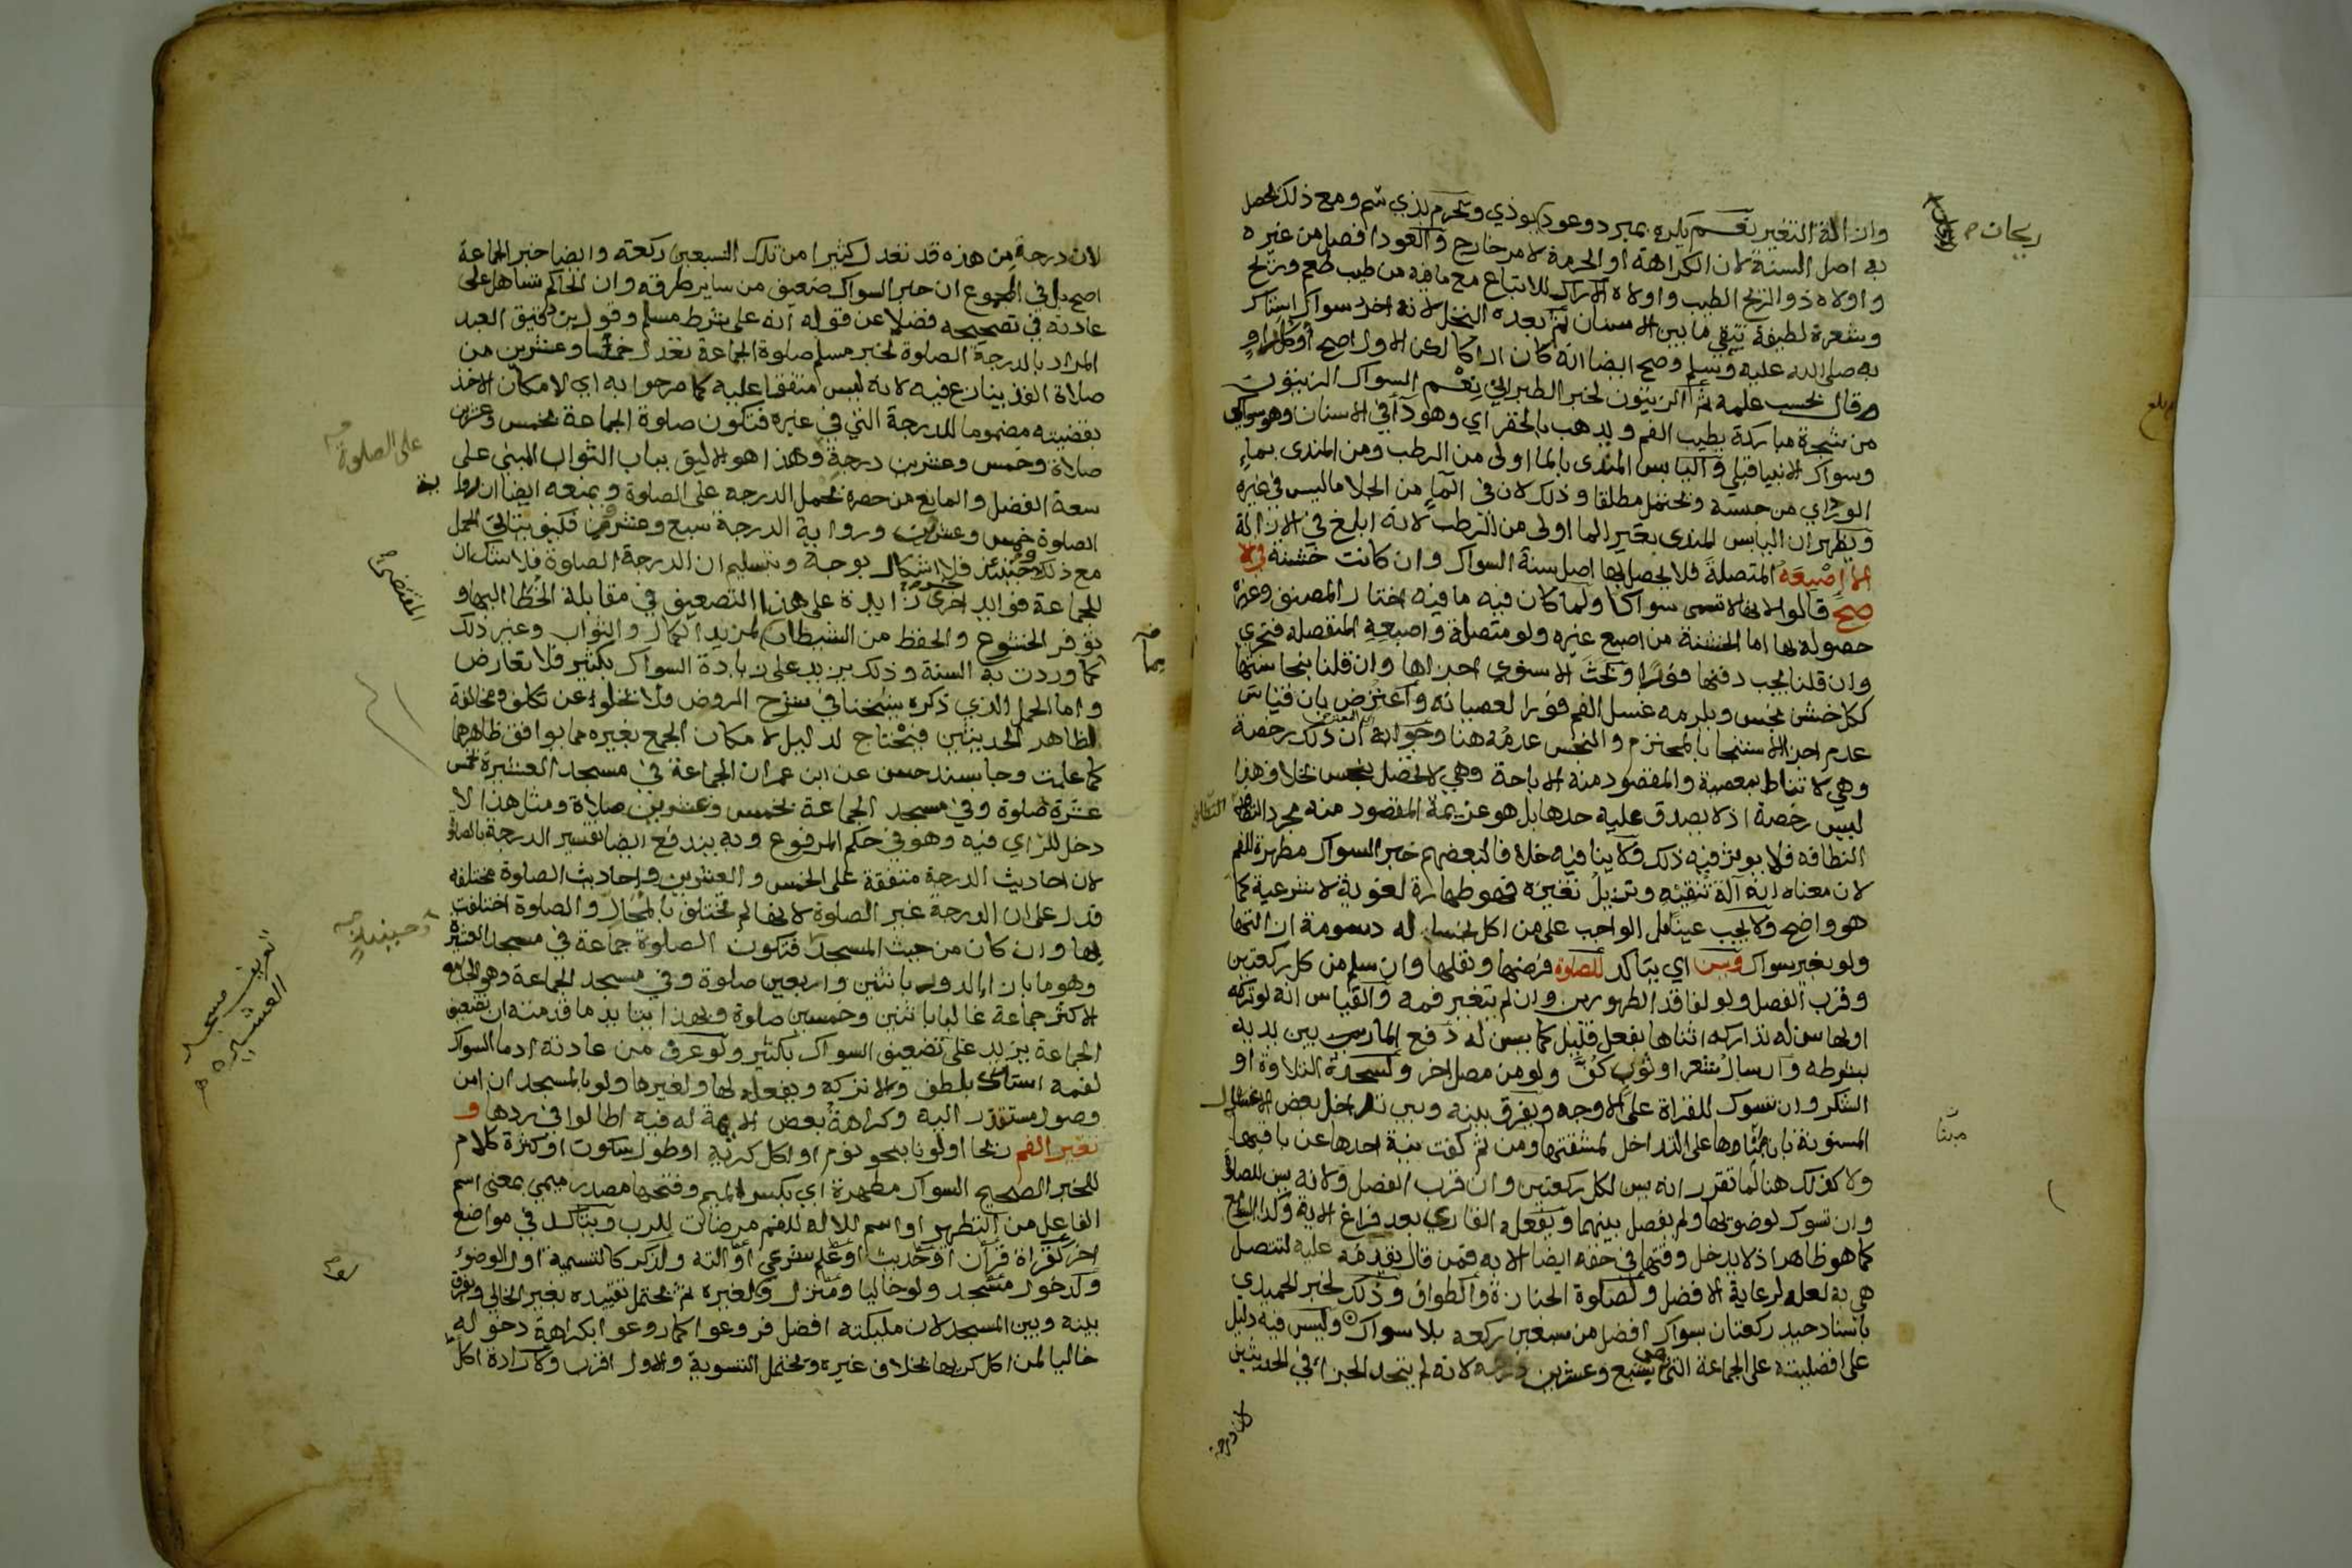 وان الة التغير نعم يكره بمبرد وعود يوذي ويحرم بذي سم ومع ذلك يحصل
به اصل السنة لان الكراهة او الحرمة لامر خارج والعود افضل من غيره
واولاه ذو الريح الطيب واولاه الاراك للاتباع مع ما فيه من طيب طعم وريح
وشعرة لطيفة تنقي ما بين الاسنان ثم بعده النخل لانه اخر سواك استاك
به صلى الله عليه وسلم وصح ايضا انه كان اراكا لكن الاول اصح او كل راو
قال بحسب علمه ثم الزيتون لخبر الطبراني نعم السواك الزيتون
من شجرة مباركة يطيب الفم ويذهب بالحفر اي وهو داء في الاسنان وهو سواكي
وسواك الانبيا قبلي واليابس المندى بالما اولى من الرطب ومن المندى بماء
الورد اي من جنسه ويحتمل مطلقا وذلك لان في الماء من الجلا ما ليس في غيره
ويظهر ان اليابس المندى بغير الما اولى من الرطب لانه ابلغ في الازالة
الا اصبعه المتصلة فلا يحصل بها اصل سنة السواك وان كانت خشنة في الا
صح قالوا لانها لا تسمى سواكا ولما كان فيه ما فيه اختار المصنف وغيره
حصوله بها اما الخشنة من اصبع غيره ولو متصلة واصبعه المنفصلة فتجزي
وان قلنا يجب دفنها فورا وبحث الاسنوي اجزاها وان قلنا بنجاستها
ككل خشن نجس ويلزمه غسل الفم فورا لعصيانه واعترض بان قياس
عدم اجزا الاستنجا بالمحترم والنجس عدمه هنا وجوابه ان ذلك رخصة
وهي لا تناط بمعصية والمقصود منه الاباحة وهي لا تحصل بنجس بخلاف هذا
ليس رخصة اذ لا يصدق عليه حدها بل هو عزيمة المقصود منه مجرد النظافة
النظافه فلا يوثر فيه ذلك ولا ينافيه خلافا لبعضهم خبر السواك مطهرة للفم
لان معناه انه الة تنقيه وتزيل تغيره فهو طهارة لغوية لا شرعية كما
هو واضح ولا يجب عينا بل الواجب على من اكل نجسا له دسومة ازالتها
ولو بغير سواك ويسن اي يتاكد للصلوة فرضها ونفلها وان سلم من كل ركعتين
وقرب الفصل ولو لفاقد الطهورين وان لم يتغير فمه والقياس انه لو تركه
اولها سن له تداركه اثناها بفعل قليل كما يسن له دفع المار بين يديه
بشرطه وارسال شعر او ثوب كف ولو من مصل اخر ولسجدة التلاوة او
الشكر وان تسوك للقراة على الاوجه ويفرق بينه وبين تداخل بعض الاغسال
المسنونة بان مبناها على التداخل لمشقتها ومن ثم كفت نية احدها عن باقيها
ولا كذلك هنا لما تقرر انه يسن لكل ركعتين وان قرب الفصل ولانه يسن للصلاة
وان تسوك لوضوئها ولم يفصل بينهما ويفعله القاري بعد فراغ الاية وكذا السامع
كما هو ظاهر اذ لا يدخل وقتها في حقه ايضا الا به فمن قال يقدمه عليه لتتصل
هي به لعله لرعاية الافضل ولصلوة الجنازة والطواف وذلك لخبر الحميدي
باسناد جيد ركعتان بسواك افضل من سبعين ركعه بلا سواك وليس فيه دليل
على افضليته على الجماعة التي بسبع وعشرين درجه لانه لم يتحد الجزا في الحديثين
لان درجة
ريحان
مبنا
لان درجة من هذه قد تعدل كثيرا من تلك السبعين ركعة وايضا خبر الجماعة
اصح بل في المجموع ان خبر السواك ضعيف من ساير طرقه وان الحاكم تساهل على
عادته في تصحيحه فضلا عن قوله انه على شرط مسلم وقول ابن دقيق العيد
المراد بالدرجة الصلوة لخبر مسلم صلوة الجماعة تعدل خمسا وعشرين من
صلاة الفذ ينازع فيه لانه ليس متفقا عليه كما صرحوا به اي لامكان الاخذ
بقضيته مضموما للدرجة التي في غيره فتكون صلوة الجماعة بخمس وعشرين
صلاة وخمس وعشرين درجة وهذا هو الاليق بباب الثواب المبني على
سعة الفضل والمانع من حصره بحمل الدرجه على الصلوة ويمنعه ايضا ان رواية
الصلوة خمس وعشرين ورواية الدرجة سبع وعشرين فكيف يتاتى الحمل
مع ذلك وحينئذ فلا اشكال بوجه وبتسليم ان الدرجة الصلوة فلا شك ان
للجماعة فوايد اخرى زايدة على هذا التضعيف في مقابلة الخطا اليها و
توفر الخشوع والحفظ من الشيطان لمزيد الكمال والثواب وغير ذلك
كما وردت به السنة وذلك يزيد على زيادة السواك بكثير فلا تعارض
واما الحمل الذي ذكره شيخنا في شرح الروض فلا يخلو عن تكلف ومخالفة
لظاهر الحديثين فيحتاج لدليل لامكان الجمع بغيره مما يوافق ظاهرهما
كما علمت وجا بسند حسن عن ابن عمر ان الجماعة في مسجد العشيرة بخمس
عشرة صلوة وفي مسجد الجماعة بخمس وعشرين صلاة ومثل هذا لا
دخل للراي فيه وهو في حكم المرفوع وبه يندفع ايضا تفسير الدرجة بالصلوة
لان احاديث الدرجة متفقة على الخمس والعشرين واحاديث الصلوة مختلفه
فدل على ان الدرجة غير الصلوة لانها لم تختلف بالمحال والصلوة اختلفت
بها وان كان من حيث المسجد فتكون الصلوة جماعة في مسجد العشيرة
وهو ما بازا الدور باثنتين واربعين صلوة وفي مسجد الجماعة وهو الجامع
الاكثر جماعة غالبا باثنين وخمسين صلوة وبهذا يتايد ما قدمته ان تضعيف
الجماعة يزيد على تضعيف السواك بكثير ولو عرف من عادته ادما السواك
لفمه استاك بلطف والا تركه ويفعله لها ولغيرها ولو بالمسجد ان امن
وصول مستقذر اليه وكراهة بعض الايمة له فيه اطالوا في ردها و
تغير الفم ريحا او لونا بنحو نوم او اكل كريه او طول سكوت او كثرة كلام
للخبر الصحيح السواك مطهرة اي بكسر الميم وفتحها مصدر ميمي بمعنى اسم
الفاعل من التطهير او اسم للالة للفم مرضات للرب ويتاكد في مواضع
اخر كقراة قران او حديث او علم شرعي او الته ولذكر كالتسمية اول الوضوء
ولدخول مسجد ولو خاليا ومنزل ولغيره ثم يحتمل تقييده بغير الخالي ويفرق
بينه وبين المسجد لان مليكته افضل فروعوا كما روعوا بكراهة دخوله
خاليا لمن اكل كريها بخلاف غيره ويحتمل التسوية والاول اقرب ولارادة اكل
على الصلوة
المقتضي
وحينئذ
تعريف مسجد
العشيره